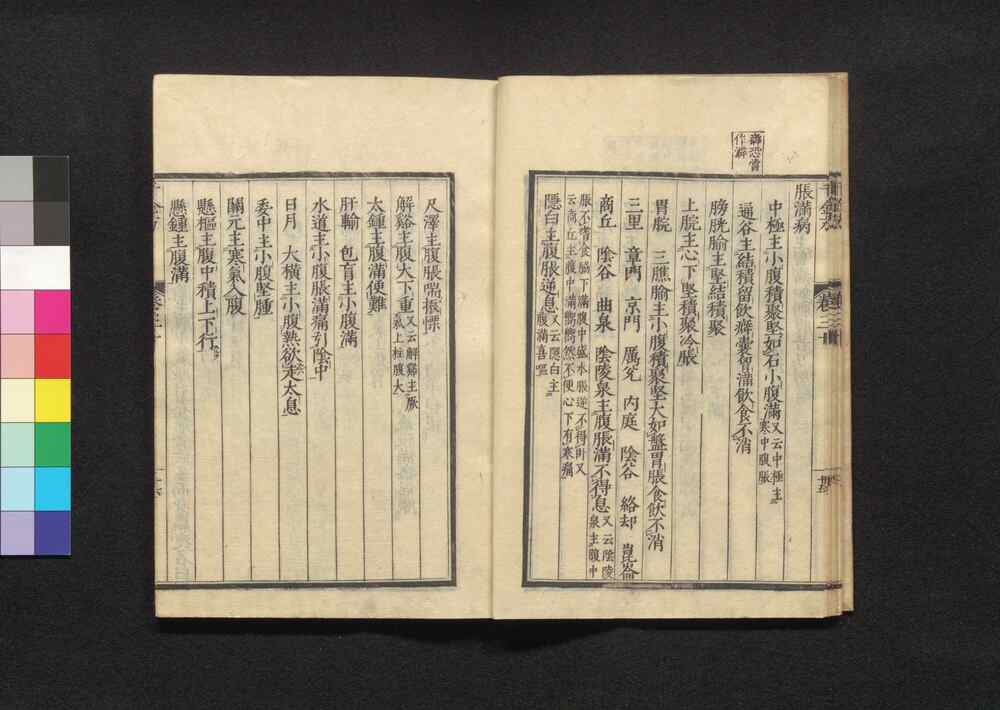 癖恐當
作澼
脹滿病
中極主小腹積聚堅如石小腹滿又云中極主寒中腹脹
通谷主結積留飲癖囊胷滿飲食不消
膀胱腧主堅結積聚
上脘主心下堅積聚冷脹
胃脘 三膲腧主小腹積聚堅大如盤胃脹食飲不消
三里 章門 京門 厲兊 內庭 陰谷 絡却 崑崙
商丘 陰谷 曲泉 陰陵泉主腹脹滿不得息又云陰陵泉主腹中
脹不嗜食脇下滿腹中盛水脹逆不得卧又云商丘主腹中滿嚮嚮然不便心下有寒痛
隱白主腹脹逆息又云隱白主腹滿喜嘔
尺澤主腹脹喘振慄
解谿主腹大下重又云解谿主厥氣上柱腹大
太鍾主腹滿便難
肝輸 包肓主小腹滿
水道主小腹脹滿痛引陰中
日月 大橫主小腹熱欲走太息
委中主小腹堅腫
關元主寒氣入腹
懸樞主腹中積上下行
懸鍾主腹滿